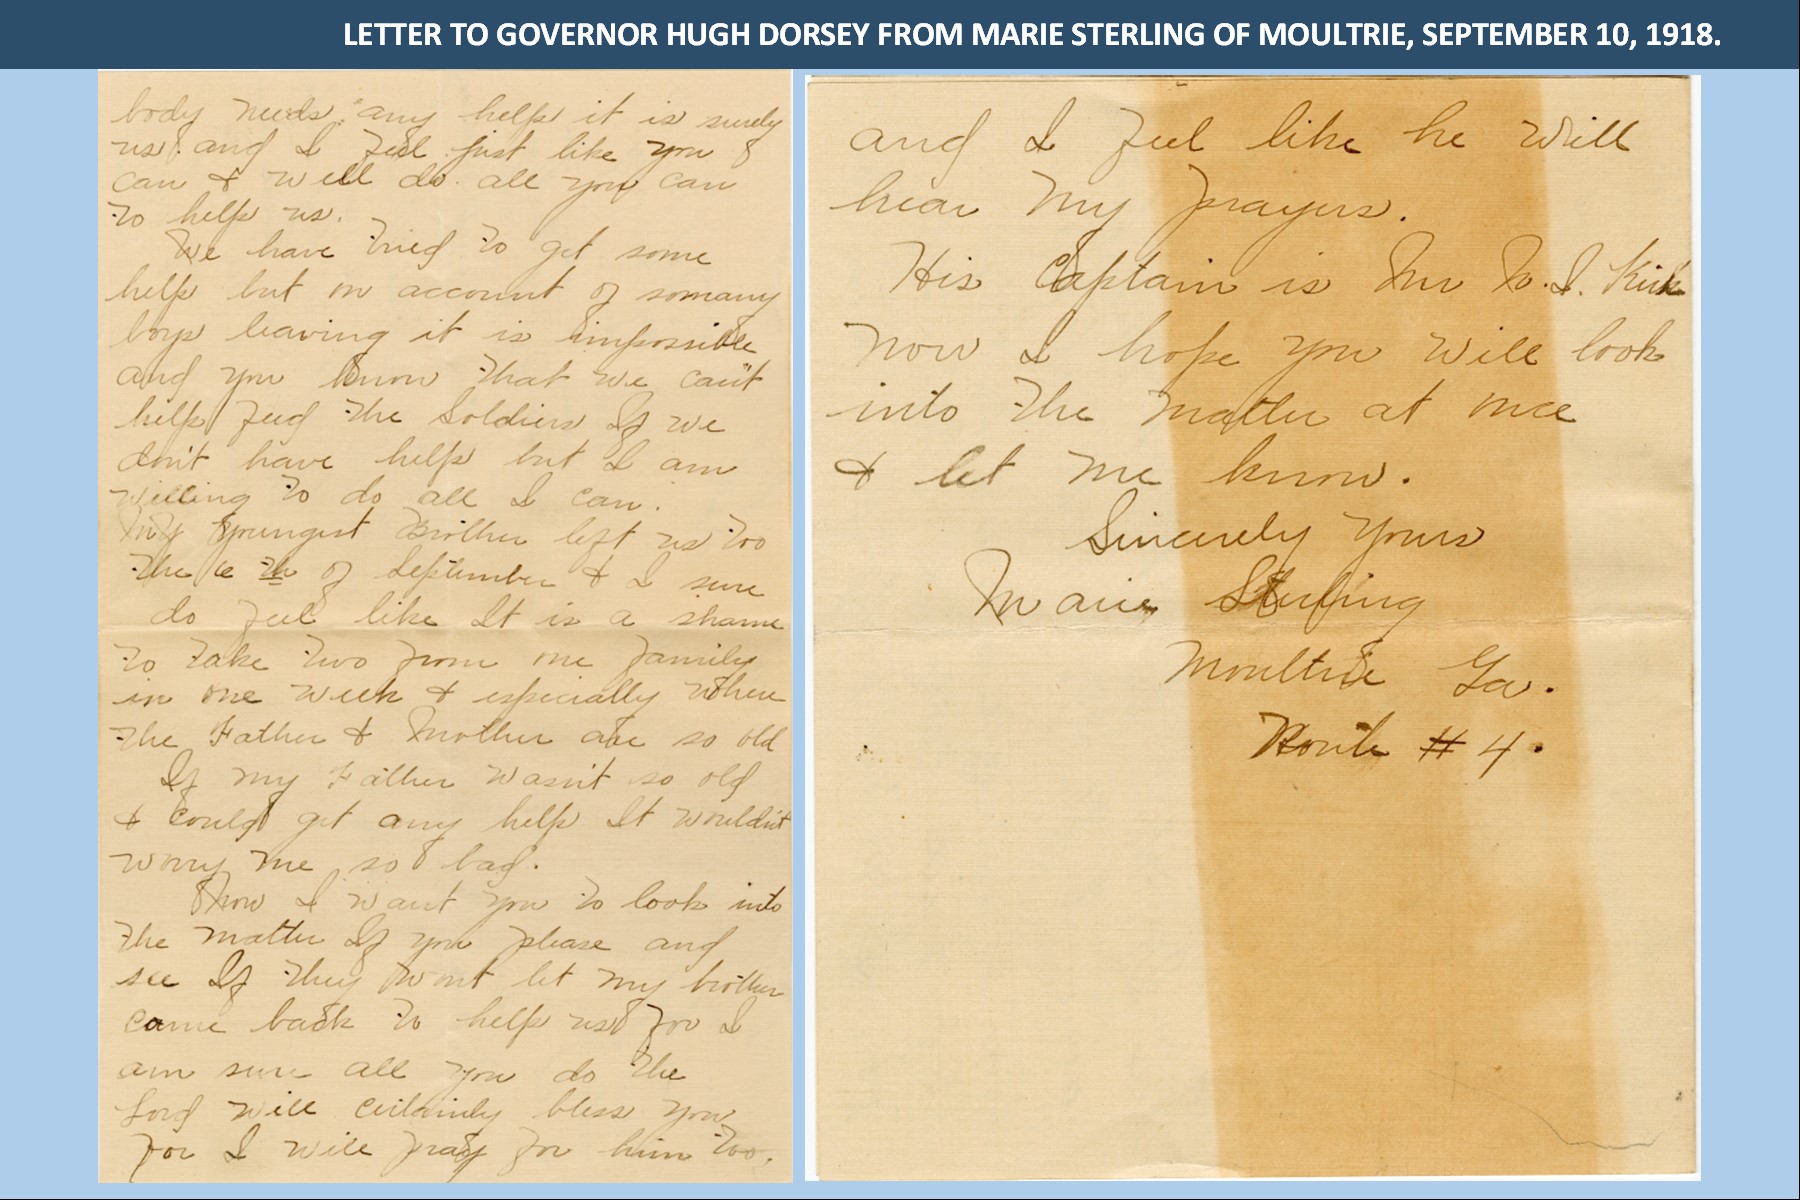 LETTER TO GOVERNOR HUGH DORSEY FROM MARIE STERLING OF MOULTRIE, SEPTEMBER 10, 1918.
body needs any help it is surely
us. and I feel just like you
can & will do. all you can
to help us.
We have tried to get some
help but on account of somany
boys leaving it is impossible
and you know that we can't
help feed the Soldiers If we
don't have help but I am
willing to do all I can.
My youngest Brother left us too
the 6 th of September & I sure
do feel like It is a shame
to take two from one family
in one week & especially where
the Father & Mother are so old
If my Father wasn't so old
& could get any help It wouldn't
worry me so bad.
Now I want you to look into
the matter If you please and
see If they wont let my brother
come back to help us for I
am sure all you do the
Lord will certainly bless you
for I will pray for him too.
and I feel like he will
hear my prayers.
His Captain is Mr I. Kirk
Now I hope you will look
into the matter at once
& let me know.
Sincerely Yours
Marie Sterling
Moultrie Ga.
Route # 4.